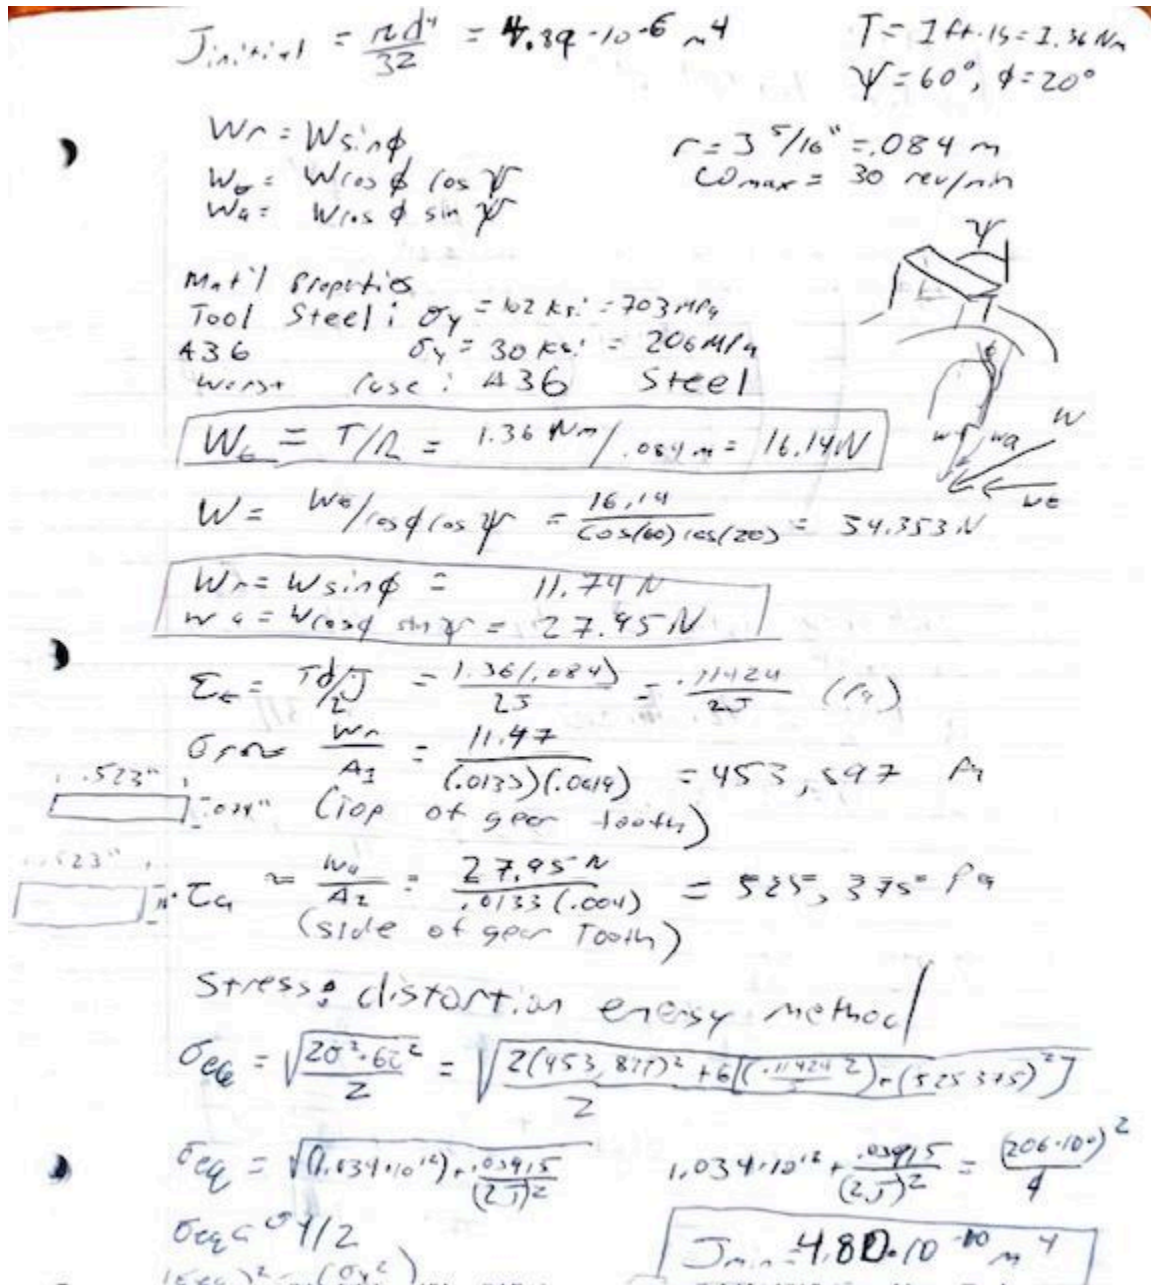 J_initial = πd⁴/32 = 4.89·10-6 m⁴
T = 1 ft·lb = 1.36 Nm
ψ = 60°, ϕ = 20°
Wr = W sinϕ
r = 3 5/16" = .084 m
W_t = W cos ϕ cos ψ
ω_max = 30 rev/min
Wa = W cos ϕ sin ψ
ψ
Mat'l Properties
Tool Steel: σy = 102 ksi = 703 MPa
A36 σy = 30 ksi = 206 MPa
worst case: A36 Steel
W_t = T/r = 1.36 Nm / .084 m = 16.14 N
W
wr wa
wt
W = Wt/cosϕ cos ψ = 16.14/cos(60) cos(20) = 34.353 N
Wr = W sinϕ = 11.74 N
wa = W cosϕ sin ψ = 27.95 N
τt = Td/2J = 1.36(.084)/2J = .11424/2J (Pa)
σr ≈ Wr/A1 = 11.47/(.0133)(.0019) = 453,897 Pa
.523"
.074"
(Top of gear tooth)
.523"
τa ≈ Wa/A2 = 27.95 N/.0133(.004) = 525,375 Pa
(side of gear Tooth)
Stress: distortion energy method
σeq = √2σ²+6τ²/2 = √2(453,897)²+6[(.11424/2J)²+(525375)²]/2
σeq = √(1.034·10¹²)+.03915/(2J)²
1.034·10¹² + .03915/(2J)² = (206·10⁶)²/4
σeq < σy/2
Jmin = 4.80·10-10 m⁴